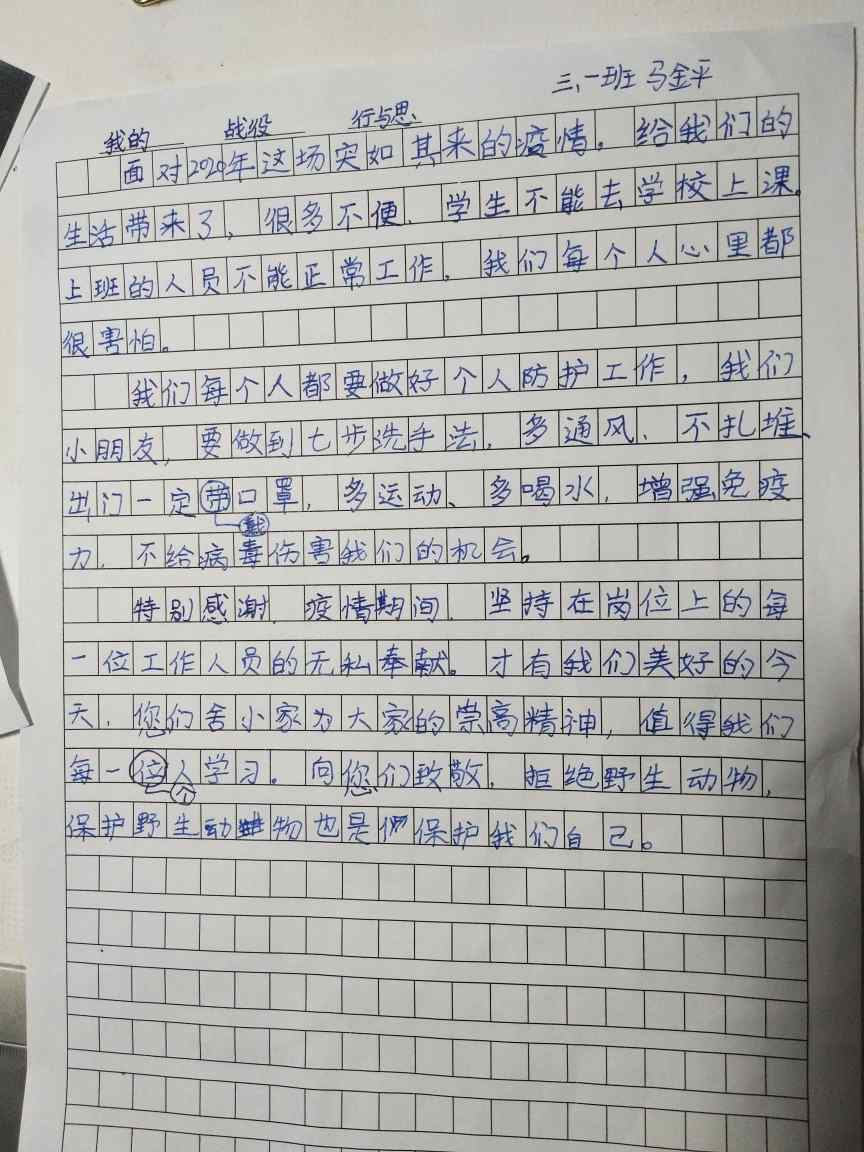 三、一班 马金平
我的 战役 行与思
面对2020年这场突如其来的疫情。给我们的
生活带来了、很多不便、学生不能去学校上课。
上班的人员不能正常工作、我们每个人心里都
很害怕。
我们每个人都要做好个人防护工作，我们
小朋友，要做到七步洗手法，多通风、不扎堆、
出门一定带口罩，多运动、多喝水，增强免疫
戴
力、不给病毒伤害我们的机会。
特别感谢、疫情期间、坚持在岗位上的每
一位工作人员的无私奉献。才有我们美好的今
天，您们舍小家为大家的崇高精神，值得我们
每一位人学习。向您们致敬，拒绝野生动物，
个
保护野生动物也是保护我们自己。